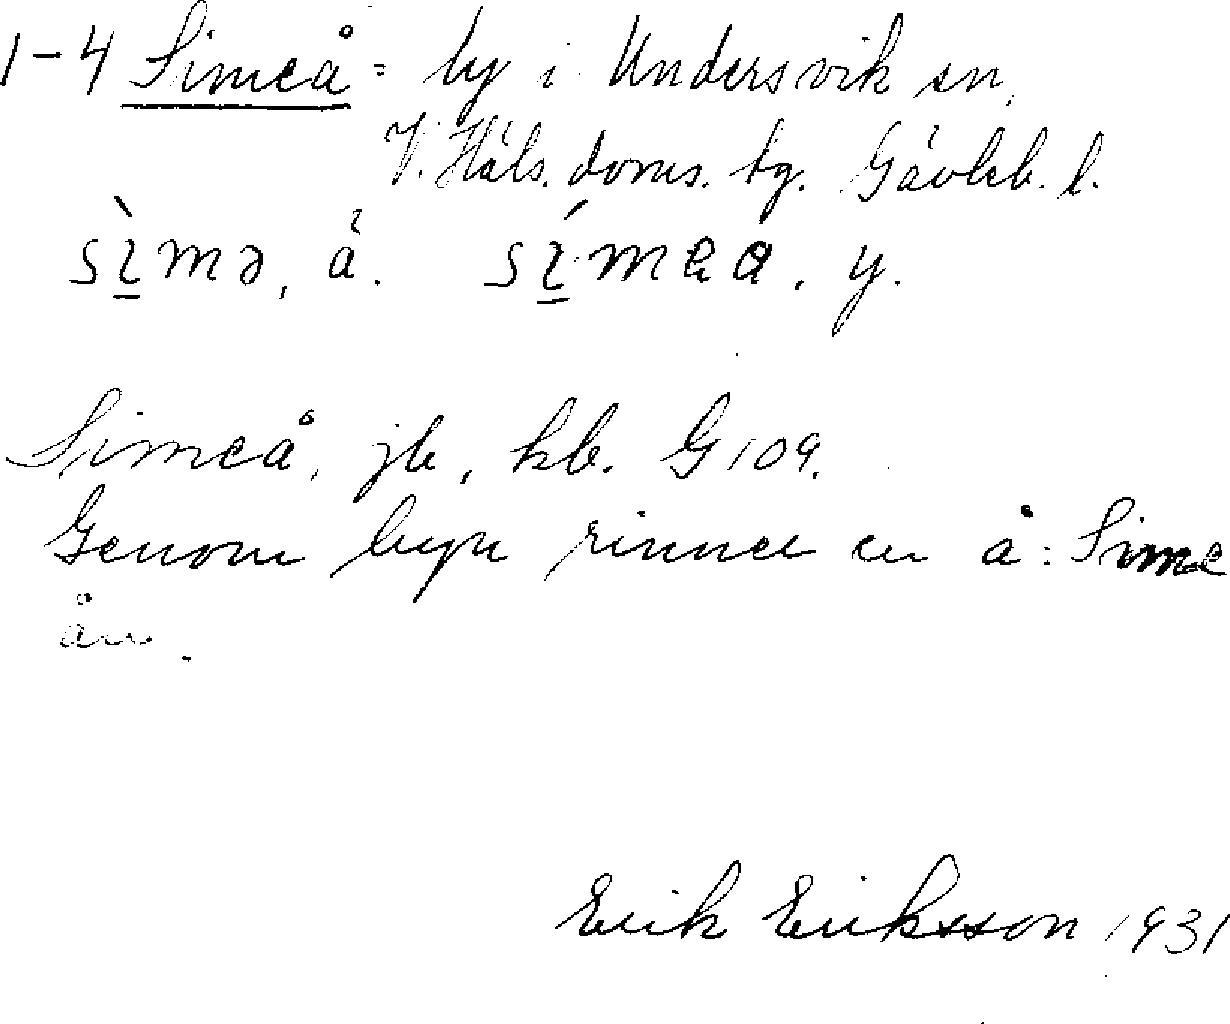 1-4 Simeå = by i Undersvik sn,
V. Häls. doms. tg. Gävleb. l.
sìmə, ä. símea, y.
Simeå, jb, kb. G 109.
Genom byn rinner en å: Sime
ån.
Erik Eriksson 1931